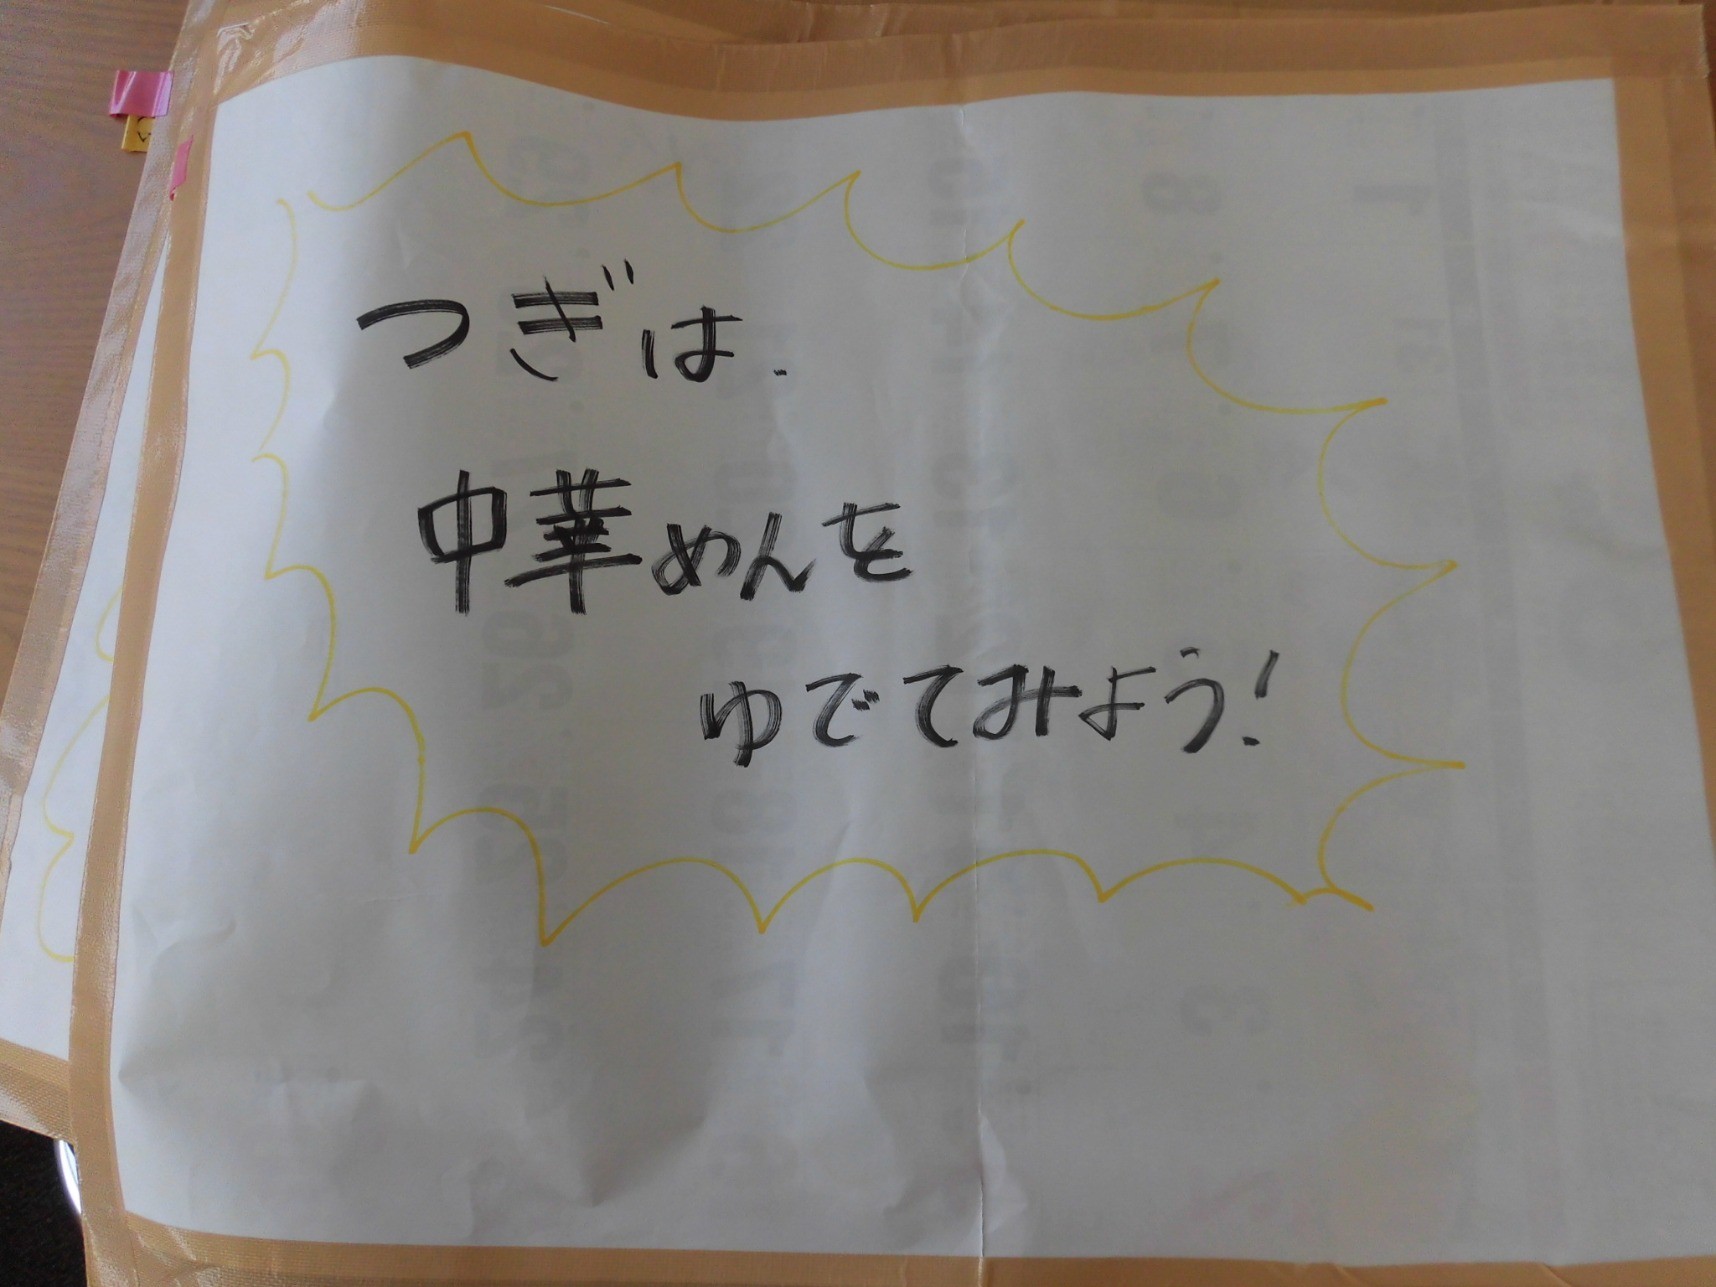 つぎは.
中華めんを
ゆでてみよう!